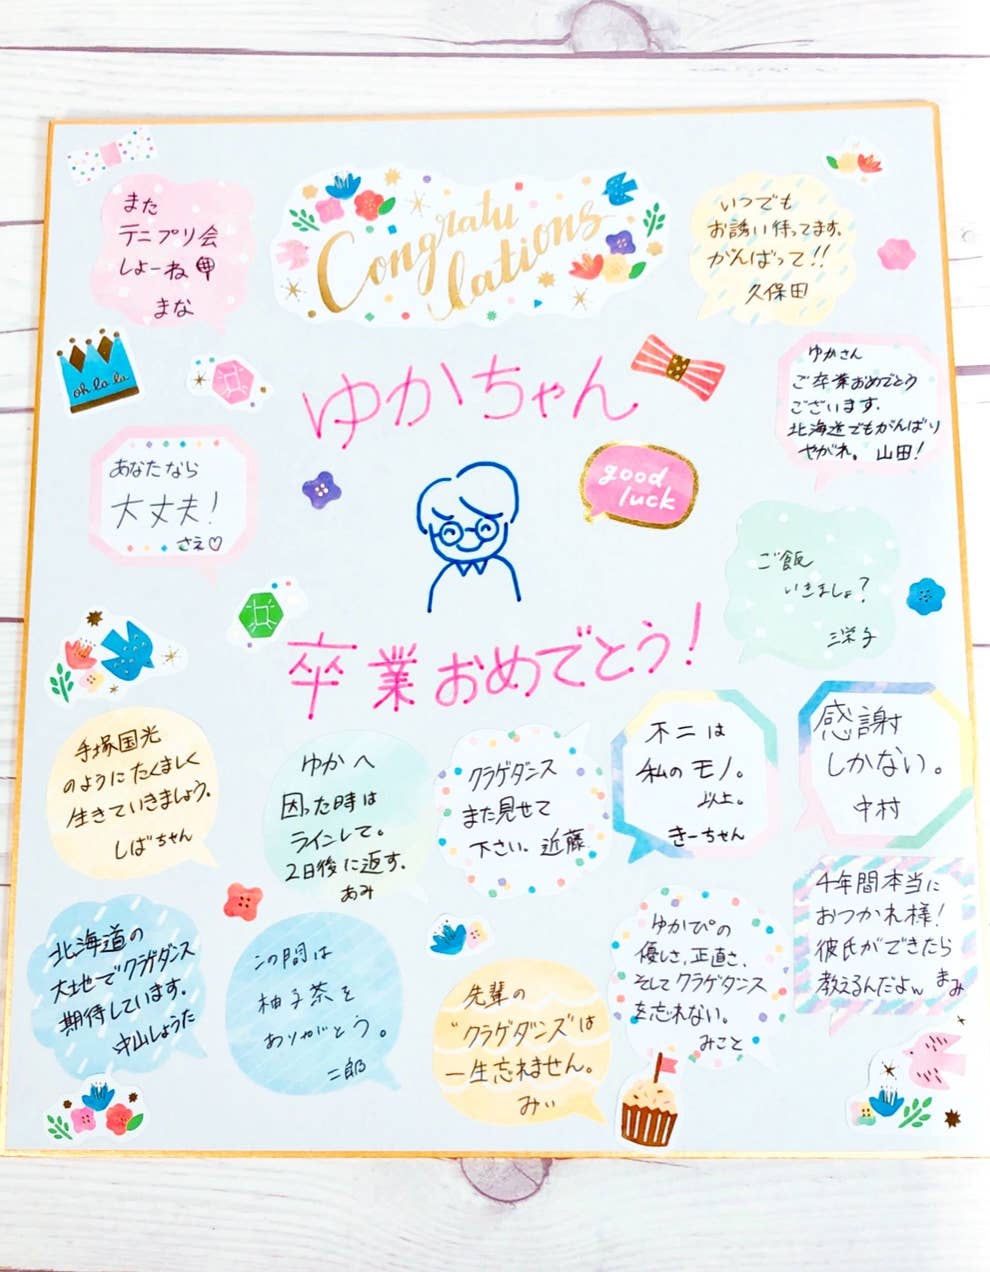 また
テニプリ会
しよーね
まな
Congratu
lations
いつでも
お誘い待ってます。
がんばって!!
久保田
ゆかちゃん
oh la la
ゆかさん
ご卒業おめでとう
ございます。
北海道でもがんばり
やがれ。 山田!
あなたなら
大丈夫!
さえ♡
good
luck
ご飯
いきましょ?
三栄子
卒業おめでとう!
手塚国光
のようにたくましく
生きていきましょう。
しばちゃん
ゆかへ
困った時は
ラインして。
2日後に返す。
あみ
クラゲダンス
また見せて
下さい。近藤
不二は
私のモノ。
以上。
きーちゃん
感謝
しかない。
中村
北海道の
大地でクラゲダンス
期待しています。
中山しょうた
この間は
柚子茶を
ありがとう。
二郎
先輩の
"クラゲダンス"は
一生忘れません。
みぃ
ゆかぴの
優しさ、正直さ、
そしてクラゲダンス
を忘れない。
みこと
4年間本当に
おつかれ様!
彼氏ができたら
教えるんだよw まみ